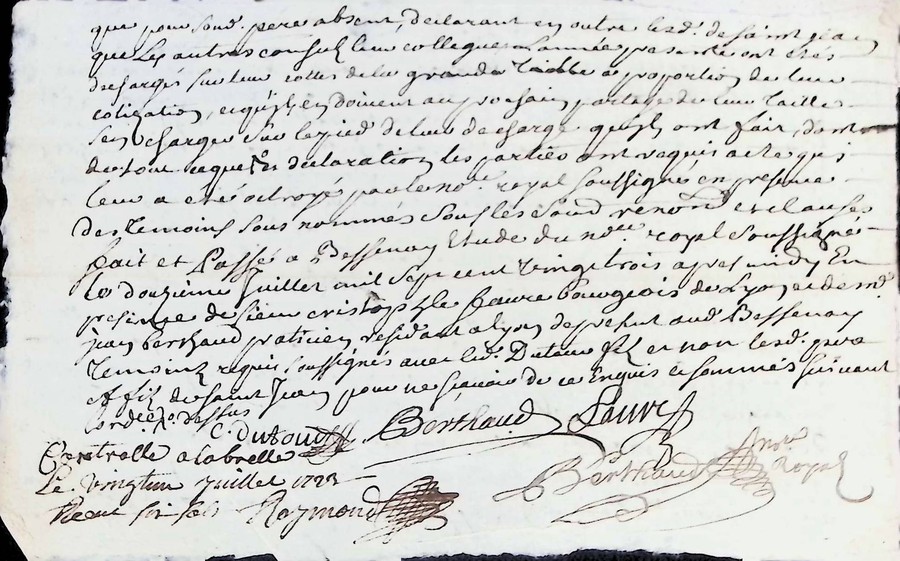 que pour son d. pere absent, declarant en outre lesd. de saint jean
que Les autres consulz leur collegues L'année presante ont étés
dechargés sur leur cottes de la grande Taille a proportion de leur
cotization, et qu'ilz en doivent au prochain partage de leur Taille
sen charger sur le pied de leur decharge qu'ilz ont fait, dont
de tout ce que dessus declaration les parties ont requis acte qui
leur a eté octroyé par le no.re royal soussigné en presence
des Temoins sous nommés sous les soud renon.on et clauses
fait et Passé a Bessenay Etude du no.re royal soussigné
le douzieme Juillet mil sept cent vingt trois apres midy En
presence de sieur cristophle faure Bourgeois de Lyon et de m.e
jean berthaud praticien residant a lyon de present aud. Bessenay
Temoins requis soussignés avec led. Dutoud filz et non lesd. pere
et filz de saint Jean pour ne sçavoir de ce Enquis et sommés suivant
l'ord.ce dessus
C. Dutoud Berthaud faure
Controllé a labrelle
Le vingt un juillet 1723
Receu six sols Raymond
Berthaud no.re Royal